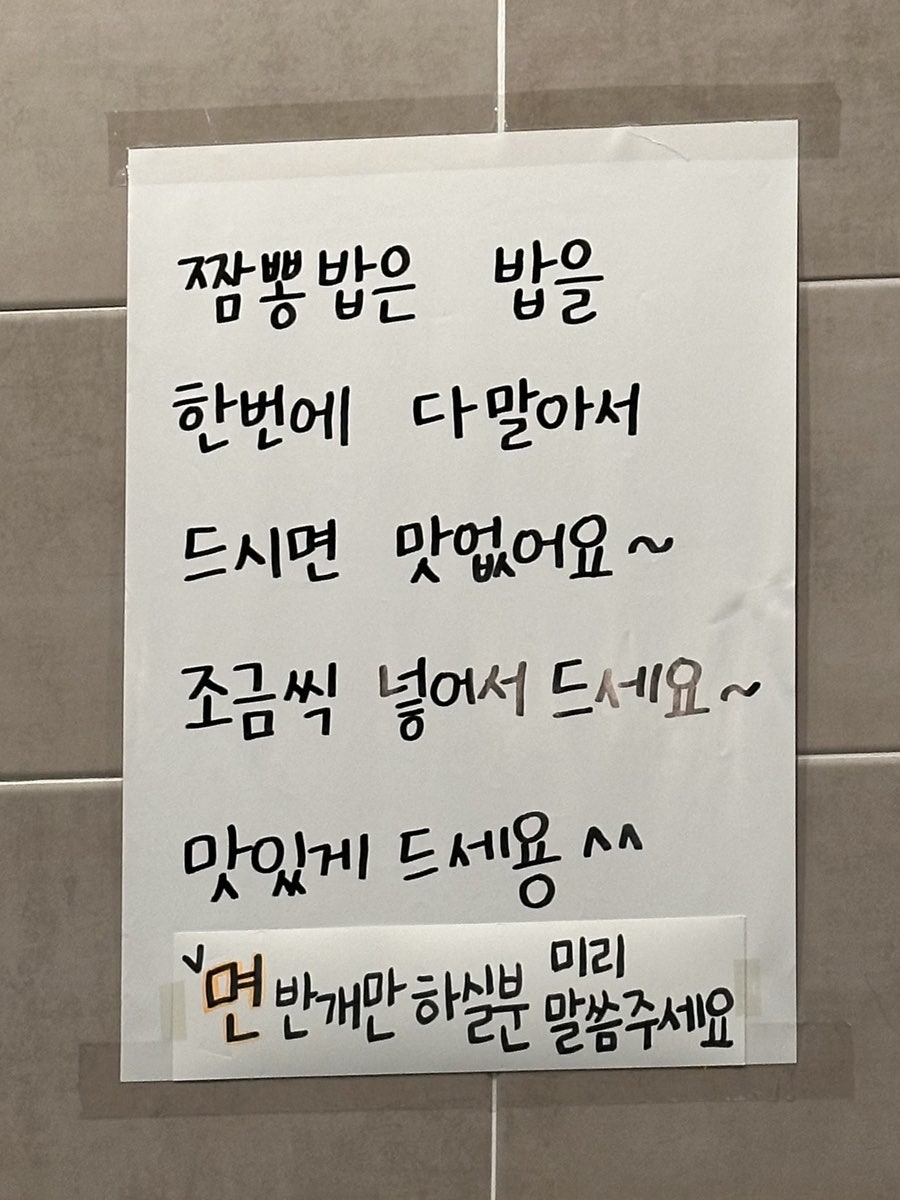 짬뽕밥은 밥을
한번에 다말아서
드시면 맛없어요~
조금씩 넣어서 드세요~
맛있게 드세용^^
v면 반개만 하실분 미리
말씀주세요